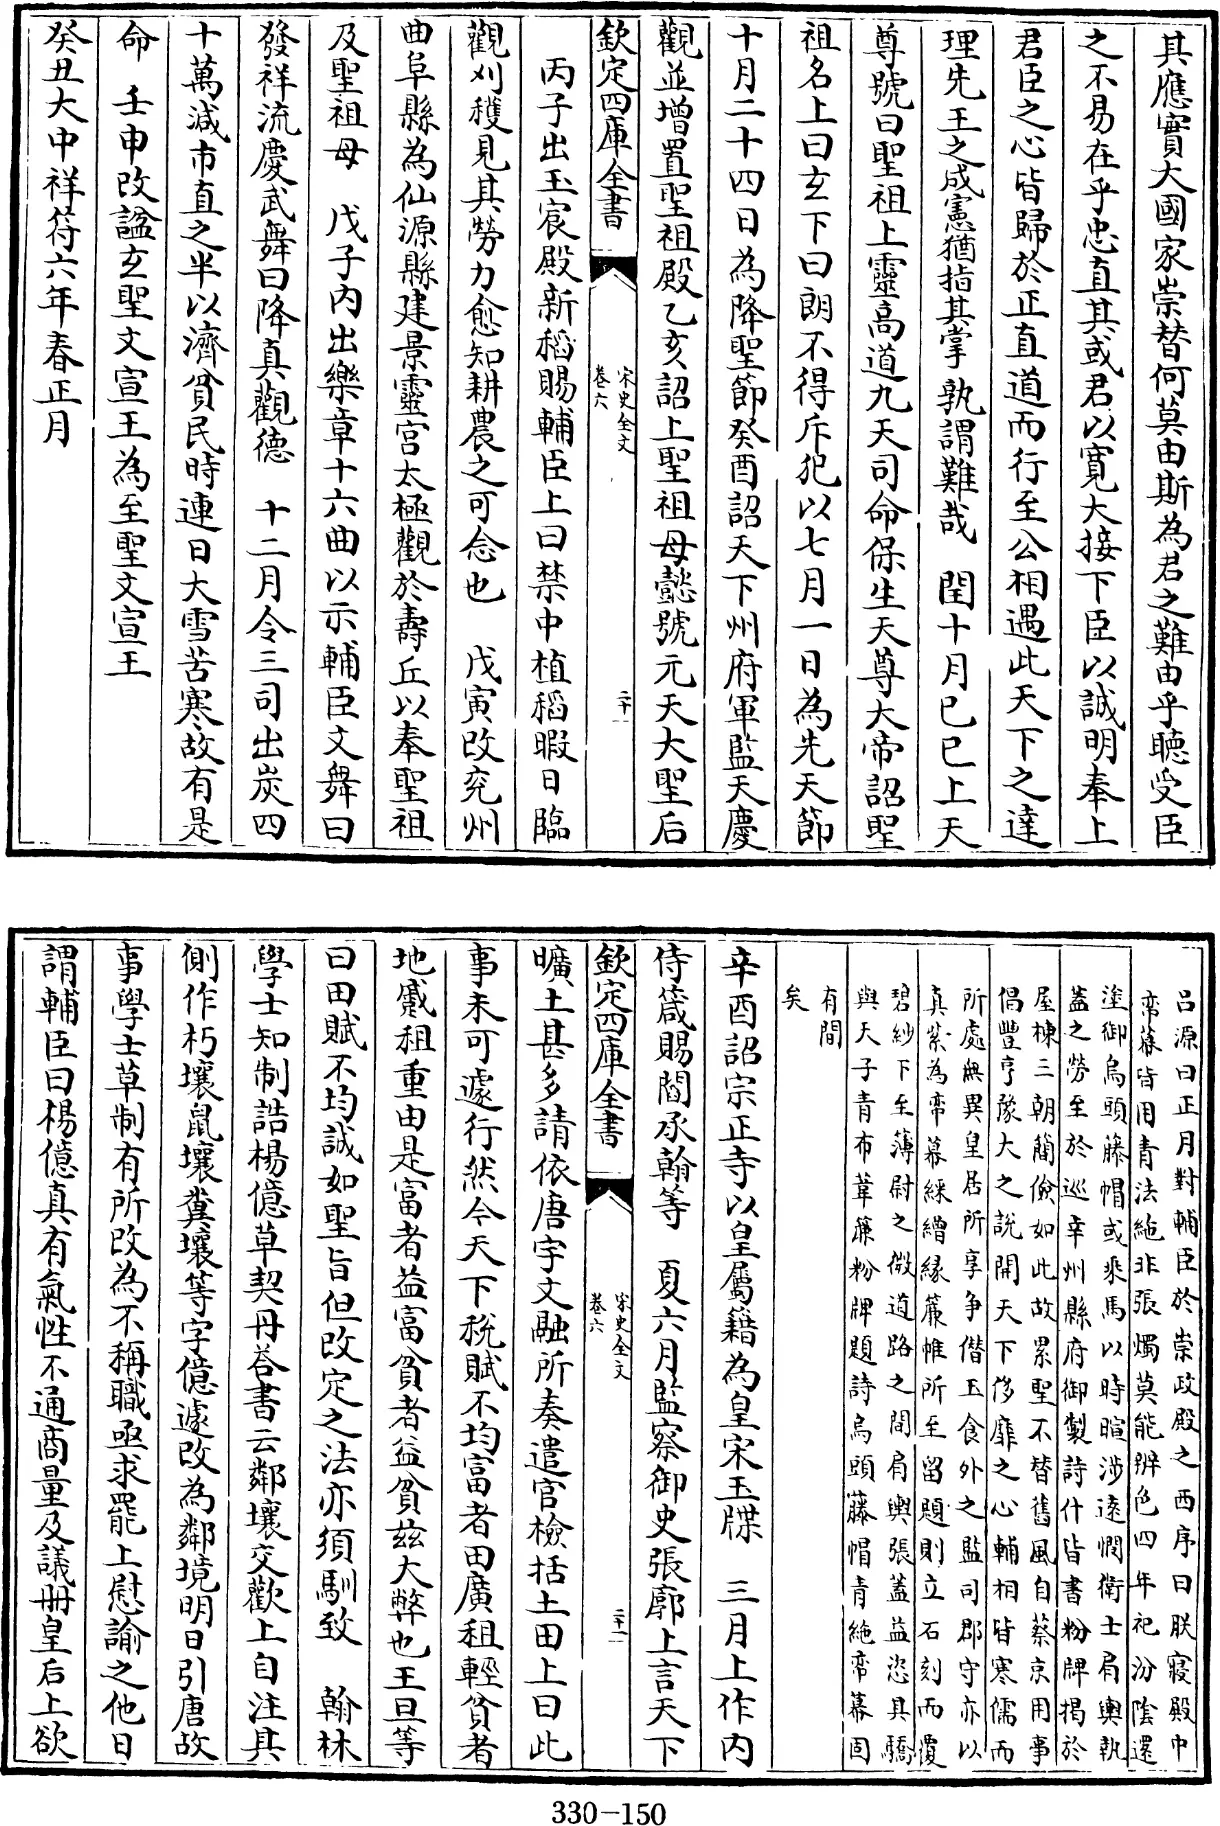 其應實大國家崇替何莫由斯為君之難由乎聽受臣
之不易在乎忠直其或君以寛大接下臣以誠明奉上
君臣之心皆歸於正直道而行至公相遇此天下之達
理先王之成憲猶指其掌孰謂難哉　閏十月己巳上天
尊號曰聖祖上靈高道九天司命保生天尊大帝詔聖
祖名上曰玄下曰朗不得斥犯以七月一日為先天節
十月二十四日為降聖節癸酉詔天下州府軍監天慶
觀並增置聖祖殿乙亥詔上聖祖母懿號元天大聖后
欽定四庫全書
宋史全文
卷六
二十
丙子出玉宸殿新稻賜輔臣上曰禁中植稻暇日臨
觀刈穫見其勞力愈知耕農之可念也　戊寅改兖州
曲阜縣為仙源縣建景靈宫太極觀於壽丘以奉聖祖
及聖祖母　戊子内出樂章十六曲以示輔臣文舞曰
發祥流慶武舞曰降真觀德　十二月令三司出炭四
十萬減市直之半以濟貧民時連日大雪苦寒故有是
命　壬申改諡玄聖文宣王為至聖文宣王
癸丑大中祥符六年春正月
吕源曰正月對輔臣於崇政殿之西序曰朕寢殿中
帟幕皆用青法絁非張燭莫能辨色四年祀汾隂還
塗御烏頭藤帽或乘馬以時暄涉遠憫衛士肩輿執
蓋之勞至於巡幸州縣府御製詩什皆書粉牌揭於
屋棟三朝簡儉如此故累聖不替舊風自蔡京用事
倡豐亨豫大之說開天下侈靡之心輔相皆寒儒而
所處無異皇居所享争僣玉食外之監司郡守亦以
真紫為帟幕綵繒緣簾帷所至留題則立石刻而覆
碧紗下至薄尉之微道路之間肩輿張蓋益恣其驕
與天子青布葦簾粉牌題詩烏頭藤帽青絁帟幕固
有間
矣
辛酉詔宗正寺以皇屬籍為皇宋玉牒　三月上作内
侍箴賜閻承翰等　夏六月監察御史張廓上言天下
欽定四庫全書
宋史全文
卷六
二十一
曠土甚多請依唐宇文融所奏遣官檢括土田上曰此
事未可遽行然今天下稅賦不均富者田廣租輕貧者
地蹙租重由是富者益富貧者益貧兹大弊也王旦等
曰田賦不均誠如聖旨但改定之法亦須馴致　翰林
學士知制誥楊億草契丹荅書云鄰壤交歡上自注其
側作朽壤鼠壤糞壤等字億遽改為鄰境明日引唐故
事學士草制有所改為不稱職亟求罷上慰諭之他日
謂輔臣曰楊億真有氣性不通商量及議冊皇后上欲
330－150